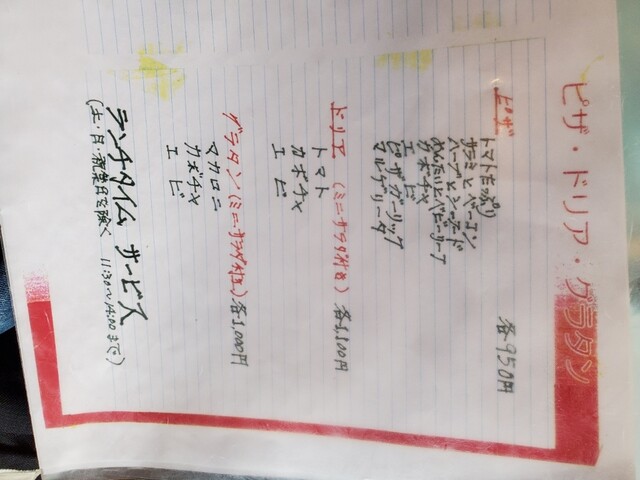 ピザ・ドリア・グラタン
ピザ 各950円
トマトたっぷり
サラミとベーコン
ハーブとシーフード
めんたいとベビーリーフ
カボチャ
エビ
ピザガーリック
マルゲリータ
ドリア (ミニサラダ付き) 各1,100円
トマト
カボチャ
エビ
グラタン (ミニサラダ付き) 各1,000円
マカロニ
カボチャ
エビ
ランチタイム サービス
(土・日・祝祭日を除く 11:30〜14:00まで)